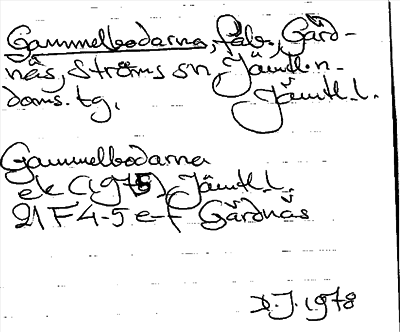 Gammelbodarna, fäb., Gård-
näs, Ströms sn, Jämtl. n.
doms. tg. Jämtl. l.
Gammelbodarna
ek (1975) Jämtl. l.
21 F 4-5 e-f Gårdnäs
D.J. 1978